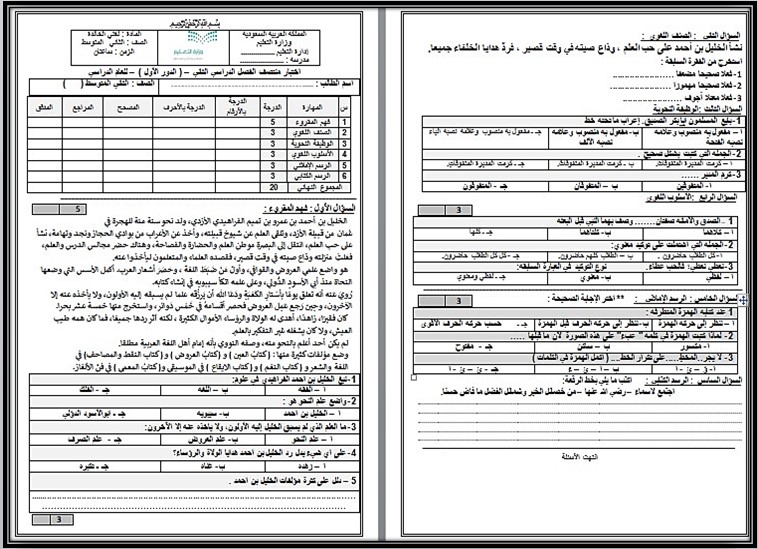 بسم الله الرحمن الرحيم
المملكة العربية السعودية
وزارة التعليم
إدارة التعليم ............
مدرسة : ............
وزارة التعليم
المادة : لغتي الخالدة
الصف : الثاني المتوسط
الزمن : ساعتان
اختبار منتصف الفصل الدراسي الثاني – ( الدور الأول ) – للعام الدراسي
اسم الطالب : ............ الصف : الثاني المتوسط ( )
س المهارة الدرجة الدرجة بالأرقام الدرجة بالأحرف المصحح المراجع المدقق
1 فهم المقروء 5
2 الصنف اللغوي 3
3 الوظيفة النحوية 3
4 الأسلوب اللغوي 3
5 الرسم الإملائي 3
6 الرسم الكتابي 3
المجموع النهائي 20
السؤال الأول : فهم المقروء : 5
الخليل بن أحمد بن عمرو بن تميم الفراهيدي الأزدي، ولد نحو سنة مئة للهجرة في
عُمان من قبيلة الأزد، وتلقى العلم عن شيوخ قبيلته، وأخذ عن الأعراب من بوادي الحجاز ونجد وتهامة، نشأ
على حب العلم، انتقل إلى البصرة موطن العلم والحضارة والفصاحة، وهناك حضر مجالس الدرس والعلم،
فعلت منزلته وذاع صيته في وقت قصير، فقصده العلماء والمتعلمون ليأخذوا عنه.
هو واضع علمي العروض والقوافي، وأول من ضبط اللغة ، وحصر أشعار العرب، أكمل الأسس التي وضعها
النحاة منذ أبي الأسود الدؤلي، وعلى علمه اتكأ سيبويه في إنشاء كتابه.
رُوي عنه أنه تعلق يومًا بأستار الكعبة ودعا الله أن يرزقه علما لم يسبقه إليه الأولون، ولا يأخذه عنه إلا
الآخرون، وحين رجع عمل العروض فحصر أقسامه في خمس دوائر، واستخرج منها خمسة عشر بحرا.
كان فقيرًا، زاهدًا، أهدى له الولاة والرؤساء الأموال الكثيرة ، لكنه آثر ردها جميعًا، فما كان همه طيب
العيش، ولا كان يشغله غير التفكير بالعلم.
لم يكن أحد أعلم بالنحو منه، وصفه النووي بأنه إمام أهل اللغة العربية مطلقا.
وضع مؤلفات كثيرة منها: ( كتاب العين ) و ( كتاب العروض ) و ( كتاب النقط والمصاحف ) في
اللغة والشعر و ( كتاب النغم ) و ( كتاب الإيقاع ) في الموسيقى و( كتاب المعمى ) في فن الألغاز.
1- نبغ الخليل بن احمد الفراهيدي في علوم:
ا – الفقه ب – اللغه جـ - الفلك
2- واضع علم النحو هو :
ا – الخليل بن احمد ب- سيبويه جـ - ابوالأسود الدؤلي
3- ما العلم الذي لم يسبق الخليل إليه الأولون، ولا يأخذه عنه إلا الآخرون:
ا – علم النحو ب- علم العروض جـ - علم الصرف
4- على أي شيء يدل رد الخليل بن احمد هدايا الولاة والرؤساء؟
ا – زهده ب- غناه جـ - تكبره
5 – دلل على كثرة مؤلفات الخليل بن احمد .
3
السؤال الثاني : الصنف اللغوي :
نشأ الخليل بن أحمد على حب العلم ، وذاع صيته في وقت قصير ، فردّ هدايا الخلفاء جميعها.
استخرج من الفقرة السابقة :
1- فعلا صحيحا مضعفا ............
2- فعلا صحيحا مهموزا ............
3- فعلا معتلا أجوف ............
السؤال الثالث :الوظيفة النحوية
1- بايع المسلمون أبابكر الصديق. إعراب ماتحته خط
ا – مفعول به منصوب وعلامه نصبه الفتحة ب- مفعول به منصوب وعلامه نصبه الألف جـ - مفعول به منصوب وعلامه نصبه الياء
2- الجمله التي كتبت بشكل صحيح .
ا- كرمت المديرة المتفوقاتُ. ب- كرمت المديرة المتفوقاتَ. جـ - كرمت المديرة المتفوقاتِ.
3- كرم المدير ......
ا – المتفوقين ب – المتفوقان جـ - المتفوقون
السؤال الرابع :الأسلوب اللغوي 3
1 ..الصدق والأمانه صفتان........ وصف بهما النبي قبل البعثه
ا – كلاهما ب – كلتاهما جـ - كلها
2- الجمله التي اشتملت على توكيد معنوي:
ا- كل الطلاب حاضرون. ب – الطلاب كلهم حاضرون. جـ - كل الطلاب حاضرون.
3- تعالي تعالي؛ فالحب عطاء. نوع التوكيد في العبارة السابقه:
ا – لفظي ب- معنوي جـ - لفظي ومعنوي
السؤال الخامس : الرسم الإملائي : ** اختر الإجابة الصحيحة : 3
1 عند كتابه الهمزة المتطرفه :
ا – تنظر إلى حركه الهمزة ب- تنظر إلى حركه الحرف قبل الهمزة جـ - حسب حركه الحرف الأقوى
2- لماذا كتبت الهمزة في كلمه " عبء" على هذه الصورة لأن ما قبلها ....
ا – مكسور ب – ساكن جـ - مفتوح
3 – لا يجر..المخط..... على تكرار الخط.... ( اكمل الهمزة في الكلمات )
السؤال السادس : الرسم الكتابي : اكتب ما يلي بخط الرقعة:
اجتمع لأسماء – رضي الله عنها – من خصلل الخير وشمائل الفضل ما فاض حسنا.
انتهت الأسئلة